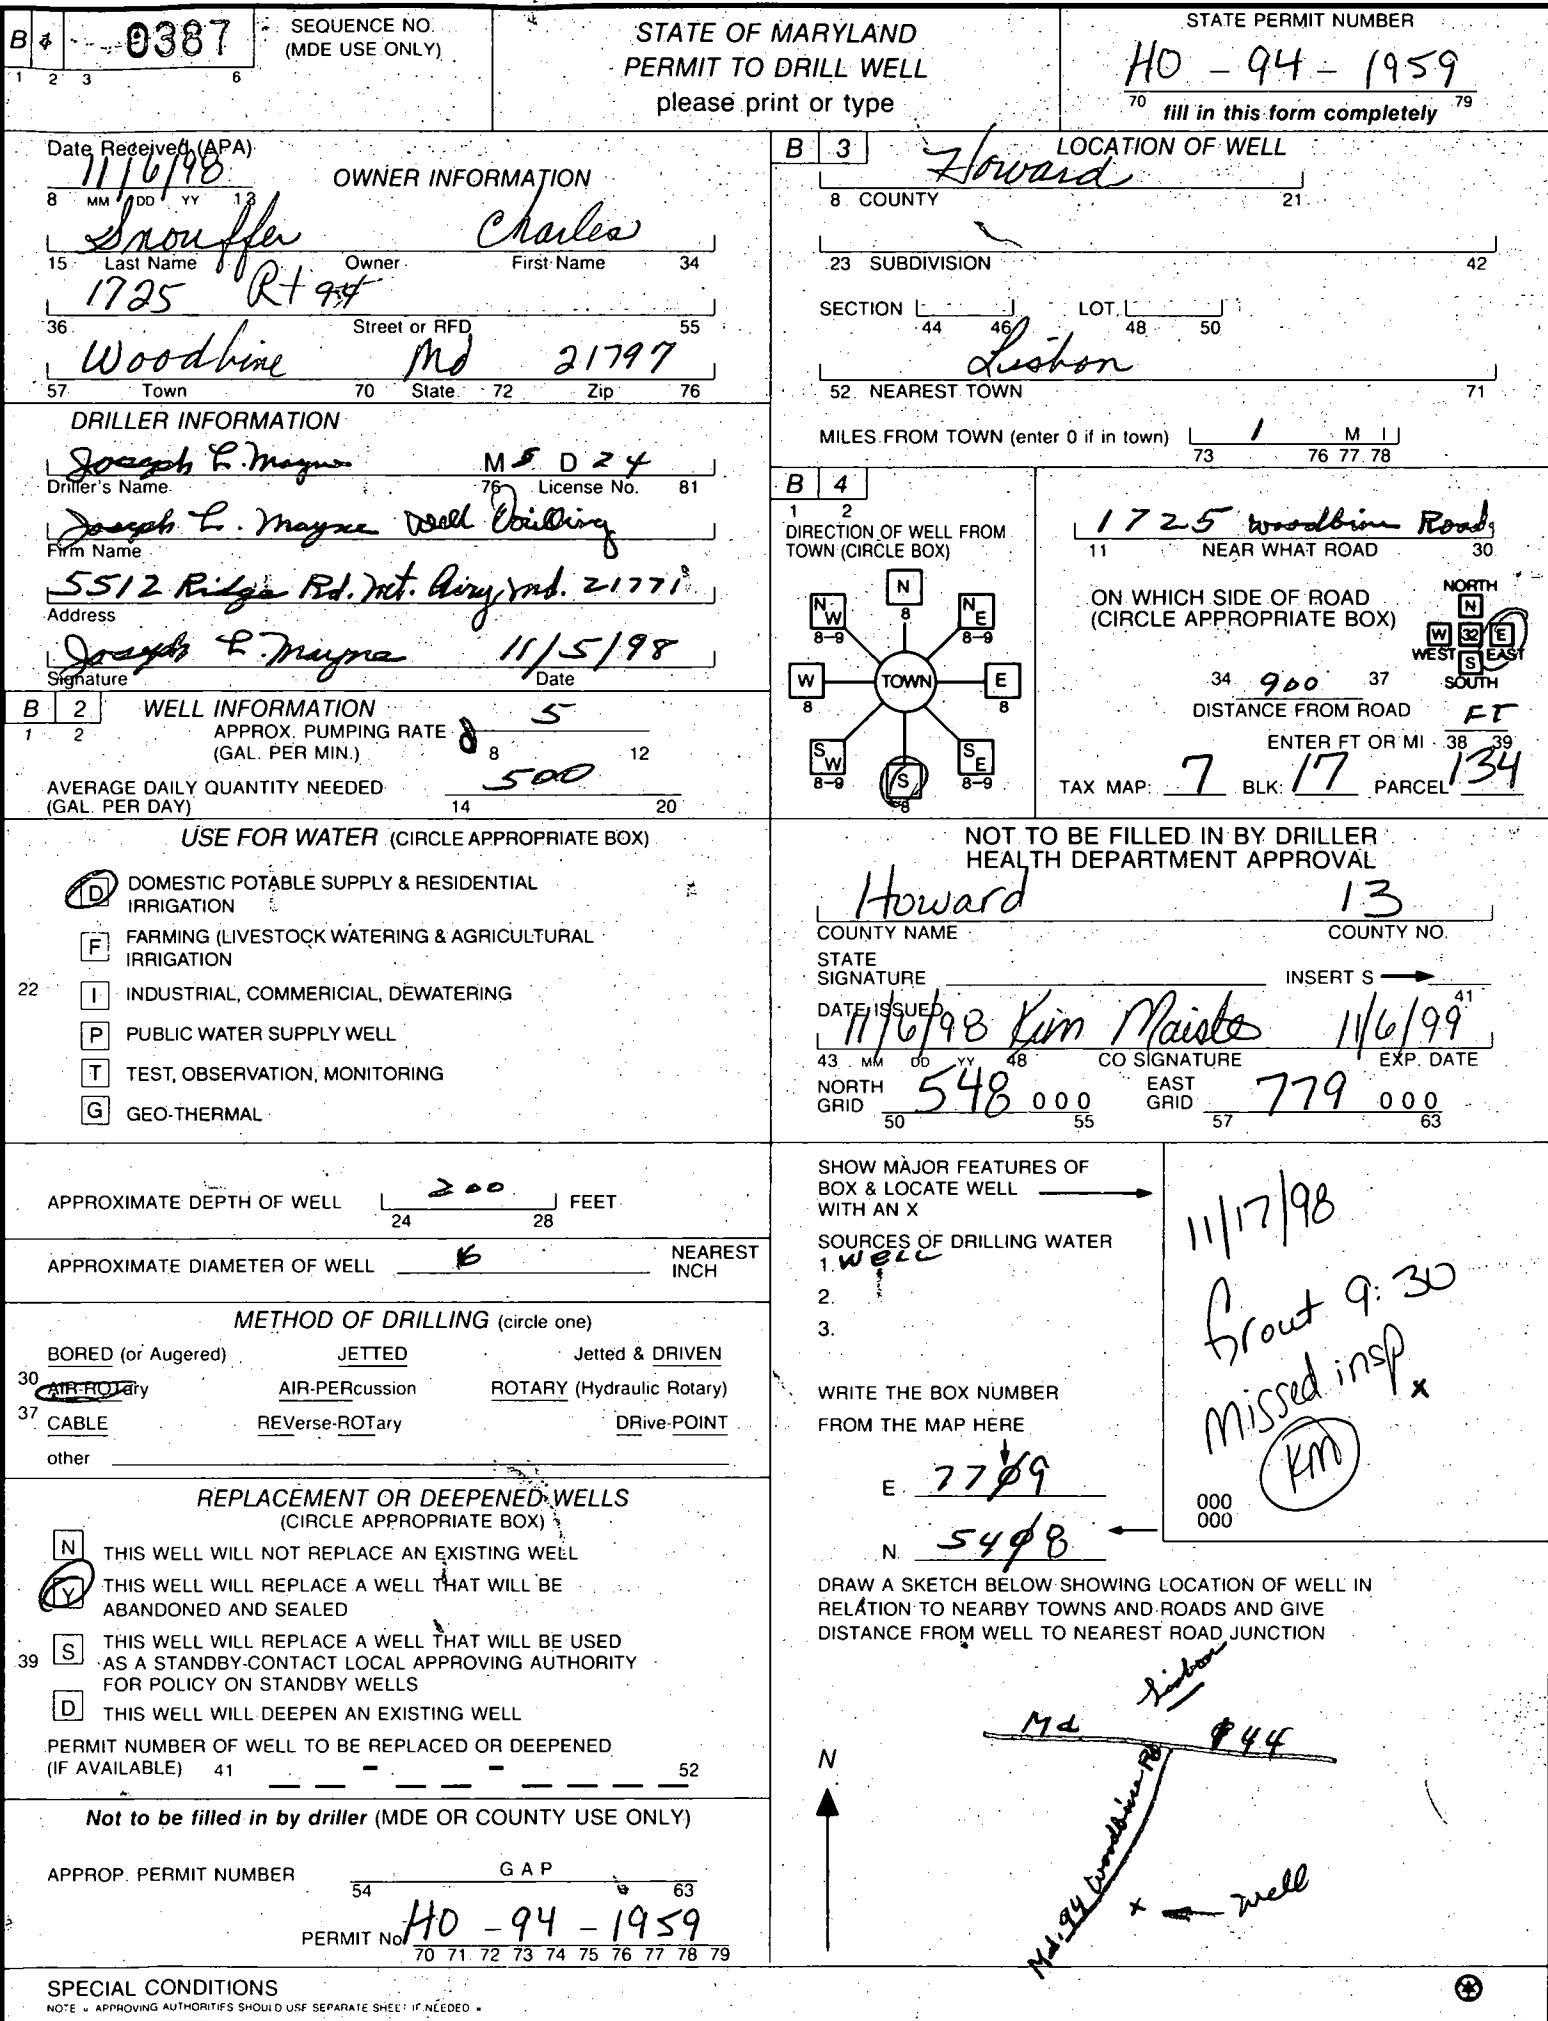 B 4 0387 SEQUENCE NO. (MDE USE ONLY)
1 2 3 6
STATE OF MARYLAND
PERMIT TO DRILL WELL
please print or type
STATE PERMIT NUMBER
HO - 94 - 1959
70 79
fill in this form completely
Date Received (APA)
11/6/98
8 MM DD YY 13
OWNER INFORMATION
Snouffer Charles
15 Last Name Owner First Name 34
1725 Rt 94
36 Street or RFD 55
Woodbine Md 21797
57 Town 70 State 72 Zip 76
DRILLER INFORMATION
Joseph L. Mayne M S D 24
Driller's Name 76 License No. 81
Joseph L. Mayne Well Drilling
Firm Name
5512 Ridge Rd. Mt. Airy, Md. 21771
Address
Joseph L. Mayne 11/5/98
Signature Date
B 2 WELL INFORMATION
1 2
APPROX. PUMPING RATE 5
(GAL. PER MIN.) 8 12
AVERAGE DAILY QUANTITY NEEDED 500
(GAL. PER DAY) 14 20
USE FOR WATER (CIRCLE APPROPRIATE BOX)
D DOMESTIC POTABLE SUPPLY & RESIDENTIAL
IRRIGATION
F FARMING (LIVESTOCK WATERING & AGRICULTURAL
IRRIGATION
22 I INDUSTRIAL, COMMERICIAL, DEWATERING
P PUBLIC WATER SUPPLY WELL
T TEST, OBSERVATION, MONITORING
G GEO-THERMAL
APPROXIMATE DEPTH OF WELL 200 FEET
24 28
APPROXIMATE DIAMETER OF WELL 6 NEAREST
INCH
METHOD OF DRILLING (circle one)
BORED (or Augered) JETTED Jetted & DRIVEN
30 AIR-ROTary AIR-PERcussion ROTARY (Hydraulic Rotary)
37 CABLE REVerse-ROTary DRive-POINT
other
REPLACEMENT OR DEEPENED WELLS
(CIRCLE APPROPRIATE BOX)
N THIS WELL WILL NOT REPLACE AN EXISTING WELL
Y THIS WELL WILL REPLACE A WELL THAT WILL BE
ABANDONED AND SEALED
39 S THIS WELL WILL REPLACE A WELL THAT WILL BE USED
AS A STANDBY-CONTACT LOCAL APPROVING AUTHORITY
FOR POLICY ON STANDBY WELLS
D THIS WELL WILL DEEPEN AN EXISTING WELL
PERMIT NUMBER OF WELL TO BE REPLACED OR DEEPENED
(IF AVAILABLE) 41 - - 52
Not to be filled in by driller (MDE OR COUNTY USE ONLY)
APPROP. PERMIT NUMBER G A P
54 63
PERMIT No HO - 94 - 1959
70 71 72 73 74 75 76 77 78 79
SPECIAL CONDITIONS
NOTE - APPROVING AUTHORITIES SHOULD USE SEPARATE SHEET IF NEEDED -
B 3 LOCATION OF WELL
Howard
8 COUNTY 21
23 SUBDIVISION 42
SECTION LOT
44 46 48 50
Lisbon
52 NEAREST TOWN 71
MILES FROM TOWN (enter 0 if in town) 1 M I
73 76 77 78
B 4
1 2
DIRECTION OF WELL FROM
TOWN (CIRCLE BOX)
N
8
NW NE
8-9 8-9
W TOWN E
8 8
SW S SE
8-9 8 8-9
1725 Woodbine Road
11 NEAR WHAT ROAD 30
ON WHICH SIDE OF ROAD
(CIRCLE APPROPRIATE BOX)
NORTH
N
W 32 E
WEST EAST
S
SOUTH
34 900 37
DISTANCE FROM ROAD FT
ENTER FT OR MI 38 39
TAX MAP: 7 BLK: 17 PARCEL 134
NOT TO BE FILLED IN BY DRILLER
HEALTH DEPARTMENT APPROVAL
Howard 13
COUNTY NAME COUNTY NO.
STATE
SIGNATURE INSERT S
41
DATE ISSUED
11/6/98 Kim Maiste 11/6/99
43 MM DD YY 48 CO SIGNATURE EXP. DATE
NORTH GRID 548 000 EAST GRID 779 000
50 55 57 63
SHOW MAJOR FEATURES OF
BOX & LOCATE WELL
WITH AN X
SOURCES OF DRILLING WATER
1. WELL
2.
3.
WRITE THE BOX NUMBER
FROM THE MAP HERE
E 7709
N 5408
11/17/98
Grout 9:30
missed insp
x
KM
000
000
DRAW A SKETCH BELOW SHOWING LOCATION OF WELL IN
RELATION TO NEARBY TOWNS AND ROADS AND GIVE
DISTANCE FROM WELL TO NEAREST ROAD JUNCTION
Lisbon
Md 144
N
Md. 94 Woodbine Rd
x Well